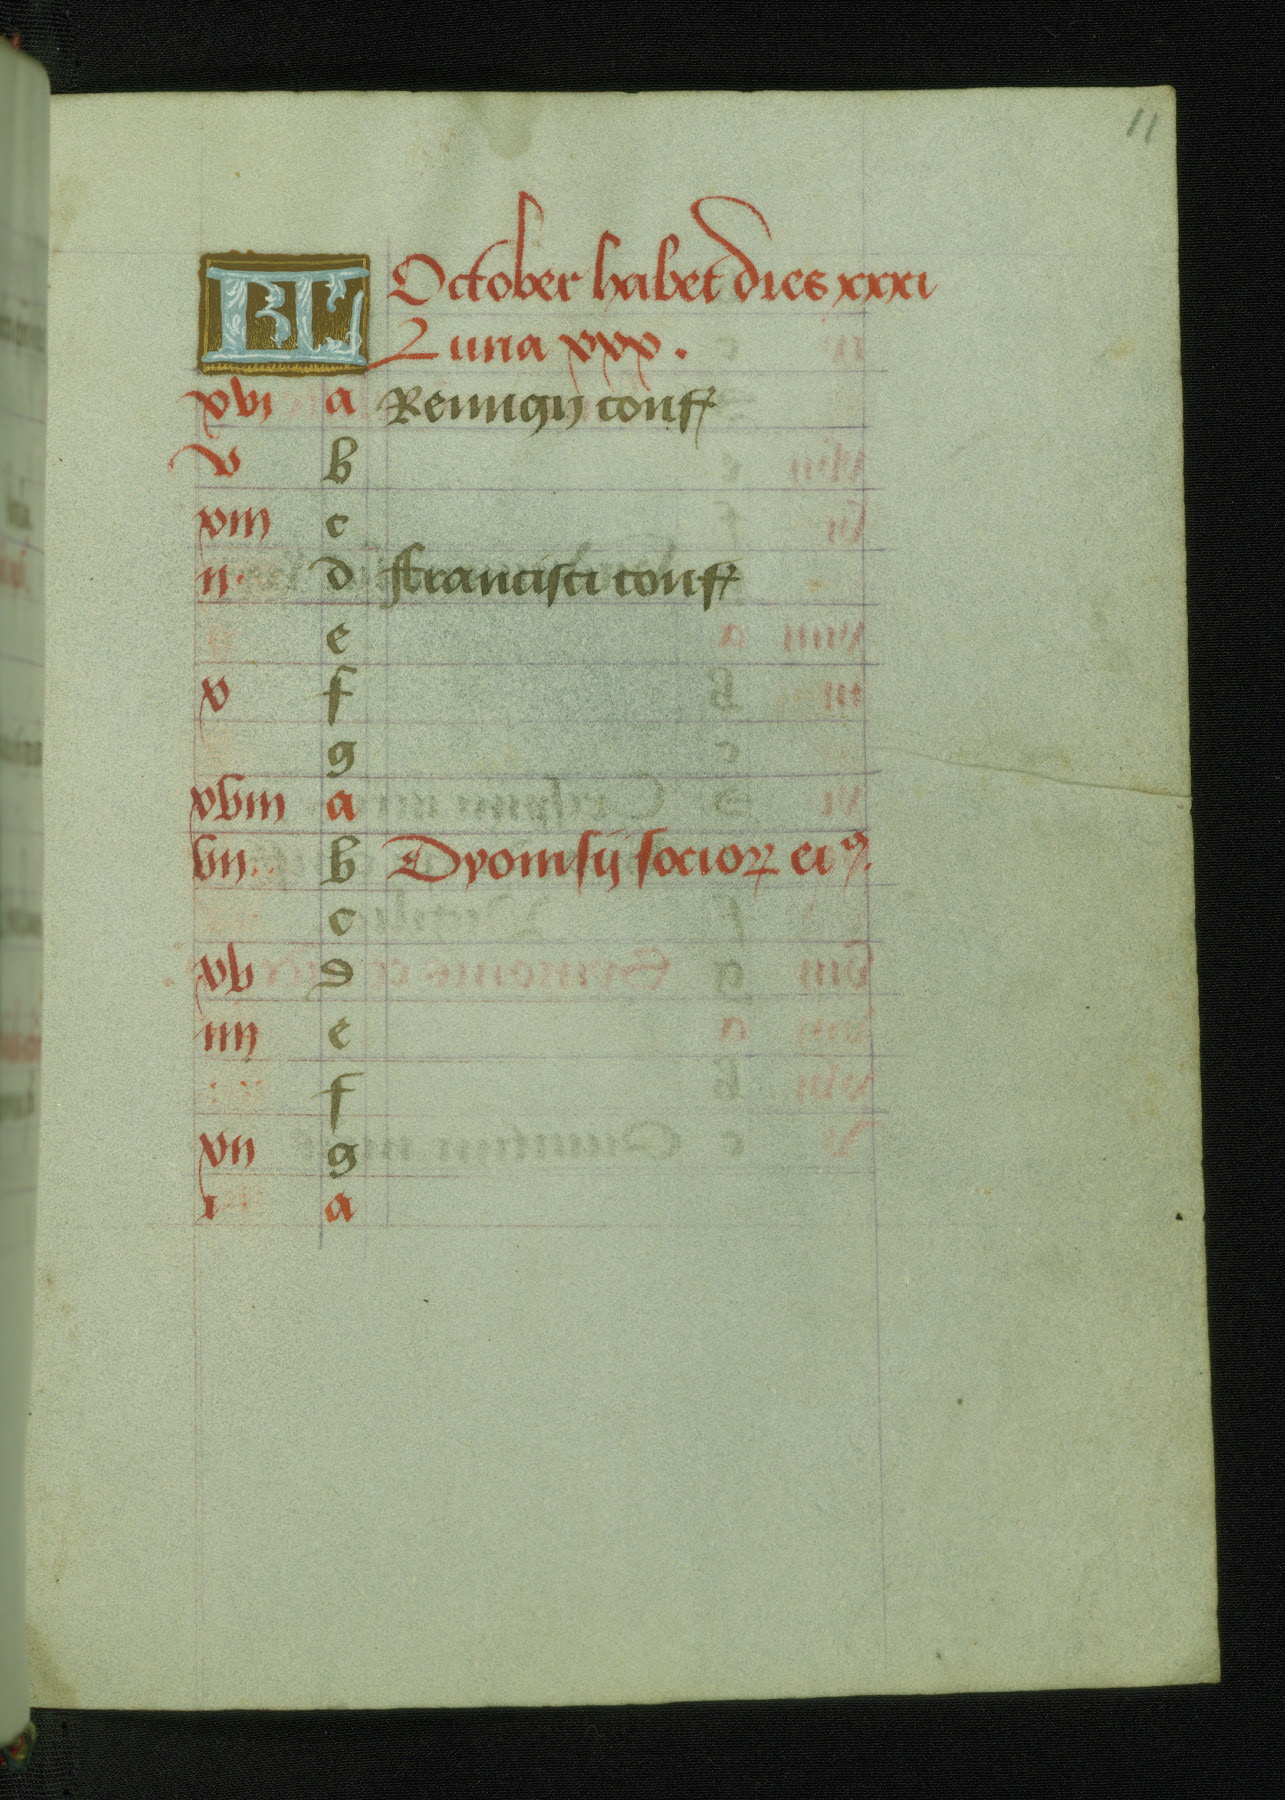 11
KL October habet dies xxxi
Luna xxx.
xvi a Remigij conf
v b
xiii c
ii. d ffrancisci conf
e
x f
g
xviii a
vii. b Dyonisij socior eiꝰ.
c
xv d
iiii e
f
xii g
i a